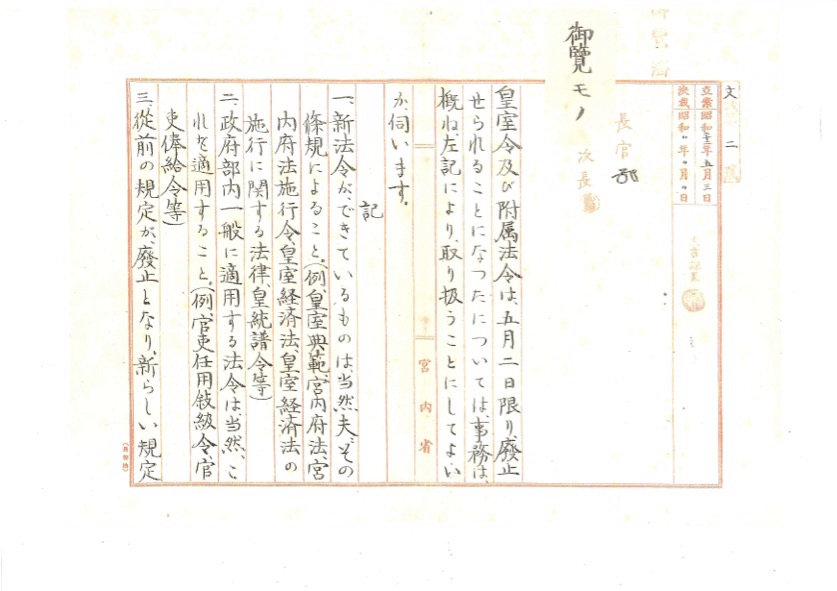 文 二
立案昭和二十二年五月三日
決裁昭和〃年〃月〃日
長官
次長
御覽モノ
皇室令及び附属法令は、五月二日限り廢止
せられることになつたについては、事務は、
概ね、左記により、取り扱うことにしてよい
か、伺います。
宮内省
記
一、新法令が、できているものは、当然夫々その
條規によること。(例、皇室典範、宮内府法、宮
内府法施行令、皇室経済法、皇室経済法の
施行に関する法律、皇統譜令等)
二、政府部内一般に適用する法令は、当然、こ
れを適用すること。(例、官吏任用敍級令、官
吏俸給令等)
三、從前の規定が、廢止となり、新らしい規定